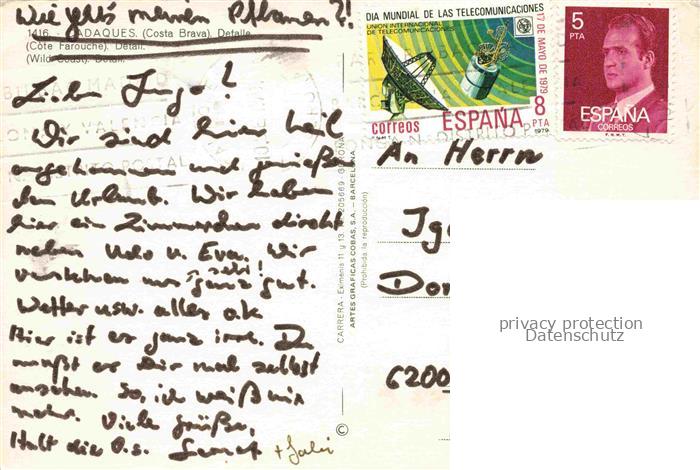 Wie geht's meinen Pflanzen?!
1416 - CADAQUES. (Costa Brava). Detalle.
(Côte Farouche). Détail.
(Wild Coast). Detail.
Lieber Ingo!
Wir sind hier heil
angekommen und genießen
den Urlaub. Wir haben
hier ein Zimmerchen direkt
neben Udo u. Eva. Wir
verstehen uns ganz gut.
sehr!
Wetter usw. alles o.k.
Hier ist es ganz irre. Du
mußt es Dir mal selbst
ansehen. So, ich weiß nix
mehr. Viele Grüße,
Halt die O.s.
CARRERA - Eximenis 11 y 13. - 205669 - GERONA
ARTES GRAFICAS COBAS, S.A. - BARCELONA
(Prohibida la reproducción)
©
DIA MUNDIAL DE LAS TELECOMUNICACIONES
UNION INTERNACIONAL
DE TELECOMUNICACIONES
17 DE MAYO DE 1979
correos ESPAÑA 8
PTA
1979
5
PTA
ESPAÑA
CORREOS
F.N.M.T.
An Herrn
Ig
Dor
6200
privacy protection
Datenschutz